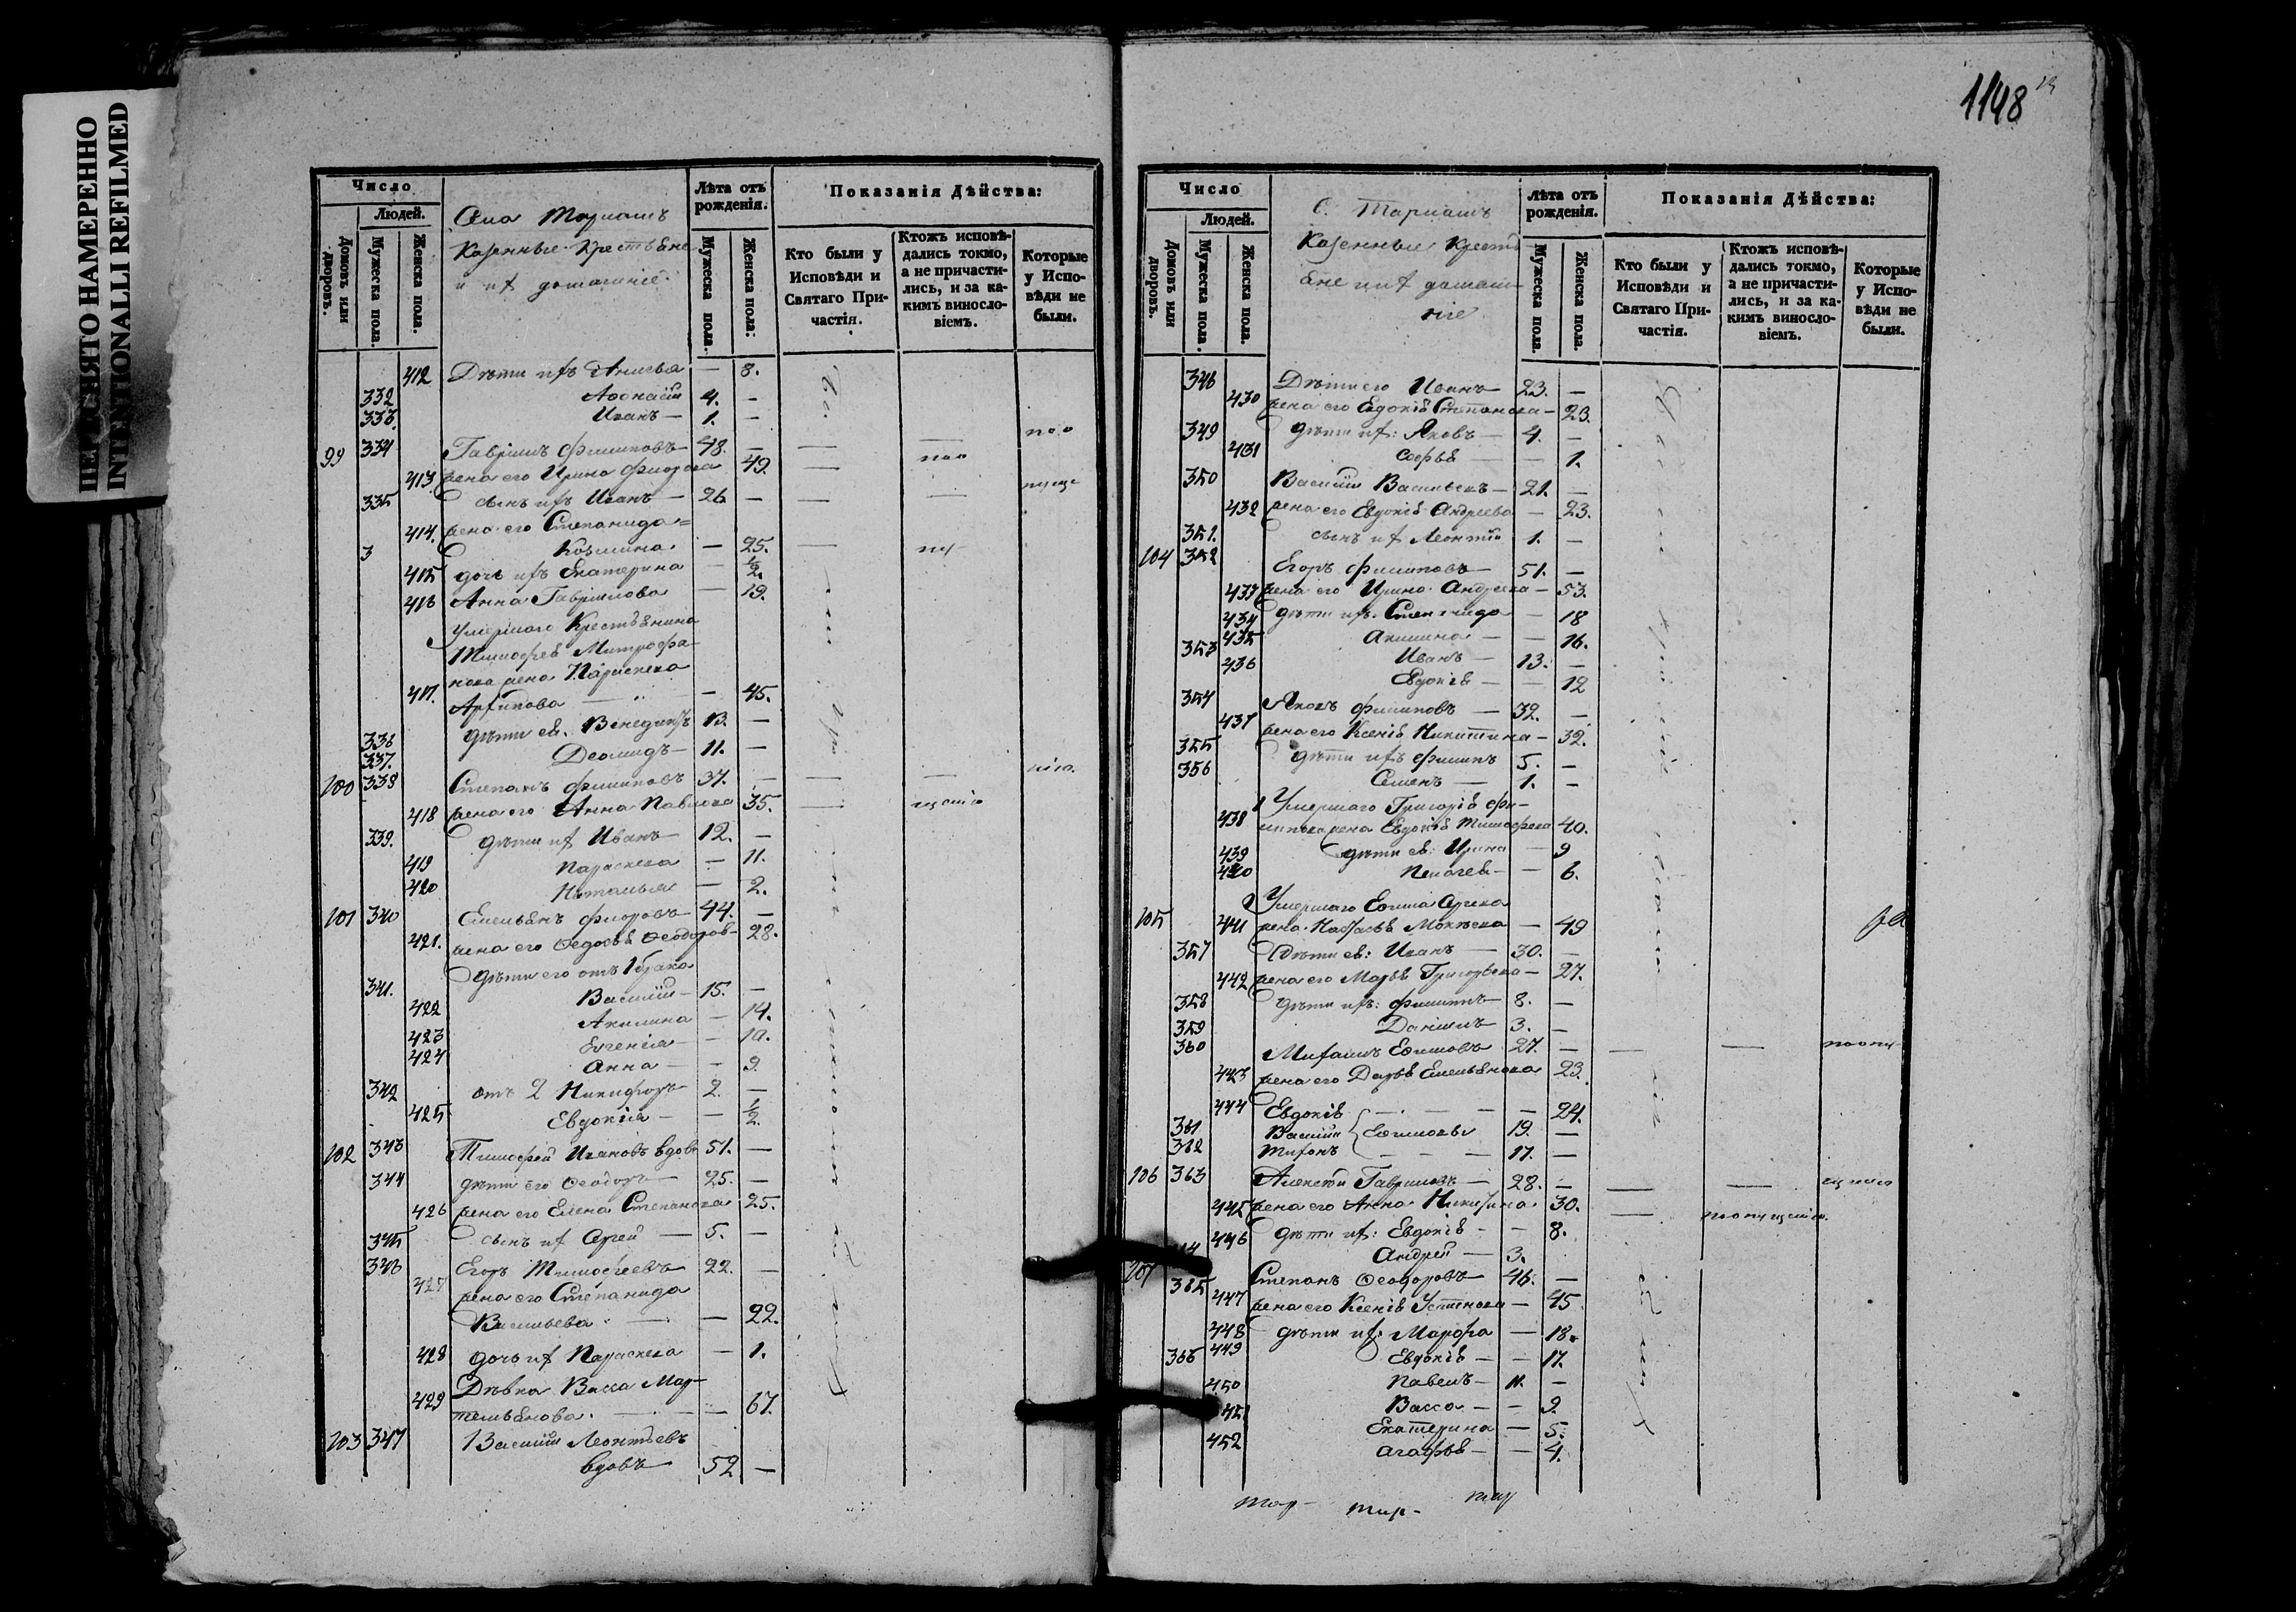 ПЕРЕСНЯТО НАМЕРЕННО
INTENTIONALLI REFILMED
Число
Людей.
Домовъ или дворовъ.
Мужеска пола.
Женска пола.
Села Тарпашъ
Казенные Крестьяне
и ихъ домашніе
Лѣта отъ рожденія.
Мужеска пола.
Женска пола.
Показанія Дѣйства:
Кто были у Исповѣди и Святаго Причастія.
Ктожъ исповѣдались токмо, а не причастились, и за какимъ винословіемъ.
Которые у Исповѣди не были.
412 Дѣти ихъ Анисья — 8.
332 Афонасій 4. —
333 Иванъ — 1. —
99 334 Гаврiилъ Филиповъ 48. —
413 жена его Ирина 49.
335 сынъ ихъ Иванъ — 26 —
414. жена его Степанида
Козмина — 25.
415 дочь ихъ Екатерина — 1/2.
416 Анна Гаврiилова — 19.
Умершаго Крестьянина
Тимофея Митрофа-
нова жена Параскева
417. Архипова — 45.
336 дѣти ея. Венедиктъ 13. —
337. Деомидъ — 11. —
100 338 Степанъ Филиповъ 37. —
418 жена его Анна Павлова 35.
339. дѣти их Иванъ — 12. —
419 Параскева — 11.
420 Наталья — 2.
101 340 Емельянъ 44. —
421. жена его Ѳедосья Ѳеодоров- 28.
дѣти его отъ 1 брака
341. Василій — 15. —
422 Акилина — 14.
423 Евгенія — 10.
424 Анна — 9
342 отъ 2 Никифоръ 2. —
425 Евдокія — 1/2.
102 343 Тимофей Ивановъ вдовъ 51. —
344 дѣти его Ѳеодоръ 25. —
426 жена его Елена Степанова 25.
345 сынъ их Сергей — 5. —
346 Егоръ Тимофеевъ 22. —
427 жена его Степанида
Васильева — 22.
428 дочь их Параскева — 1.
Дѣвка Васса Мар-
429 темьянова. — 67.
103 347 Василій Леонтьевъ
вдовъ 52 —
1148
Число
Людей.
Домовъ или дворовъ.
Мужеска пола.
Женска пола.
С. Тарпашъ
Казенные Кресть
яне и их домаш
ніе
Лѣта отъ рожденія.
Мужеска пола.
Женска пола.
Показанія Дѣйства:
Кто были у Исповѣди и Святаго Причастія.
Ктожъ исповѣдались токмо, а не причастились, и за какимъ винословіемъ.
Которые у Исповѣди не были.
348 Дѣти его Иванъ 23. —
430 жена его Евдокія Степанова — 23.
349 дѣти их: Яковъ — 4. —
431 Софья — 1.
350 Василій Васильевъ — 21. —
432 жена его Евдокія Андреева — 23.
351. сынъ их Леонтій 1. —
104 352 Егоръ Филиповъ — 51. —
433 жена его Ирина Андреева — 53.
434 дѣти ихъ. Степанида — 18
435 Акилина — 16.
353 Иванъ — 13. —
436 Евдокія — 12
354 Яковъ Филиповъ — 32. —
437 жена его Ксенія Никитина — 32.
355 дѣти ихъ Филипъ 5. —
356 Семенъ — 1. —
Умершаго Григорія Фи-
438 липова жена Евдокія Тимофеева 40.
439 дѣти ея: Ирина — 9
440 Пелагея — 6.
Умершаго Ефима
105 441 жена Настасья Мокѣева — 49
357 Дѣти ея: Иванъ — 30. —
442 жена его Марья Григорьева — 27.
358 дѣти ихъ: Филиппъ — 8. —
359 Данiилъ 3. —
360 Михаилъ Ефимовъ 27. —
443 жена его Дарья Емельянова 23.
444 Евдокія — 24.
361 Василій Ефимовы 19. —
362 Тихонъ 17. —
106 363 Алексѣй Гаврiиловъ — 28. —
445 жена его Анна Никитина 30.
446 дѣти их: Евдокія — 8.
Андрей — 3.
107 365 Степанъ Ѳеодоровъ 46. —
447 жена его Ксенія Устинова — 45
448 дѣти их: Марфа — 18.
449 Евдокія — 17.
366 Павелъ — 11. —
450 Васса — 9
451 Екатерина — 5.
452 Агафья — 4.